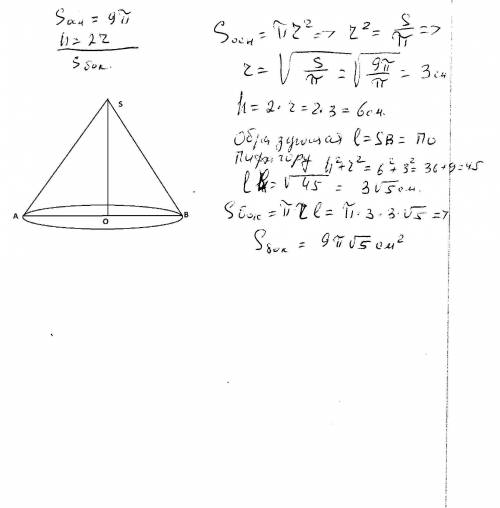 Sосн = 9π
h = 2r
Sбок.
S
A
O
B
Sосн = πr² => r² = S/π =>
r = √(S/π) = √(9π/π) = 3 см
h = 2·r = 2·3 = 6 см.
Образующая l = SB = по
Пифагору h²+r² = 6²+3² = 36+9 = 45
l = √45 = 3√5 см.
Sбок = πrl = π·3·3√5 =>
Sбок = 9π√5 см²